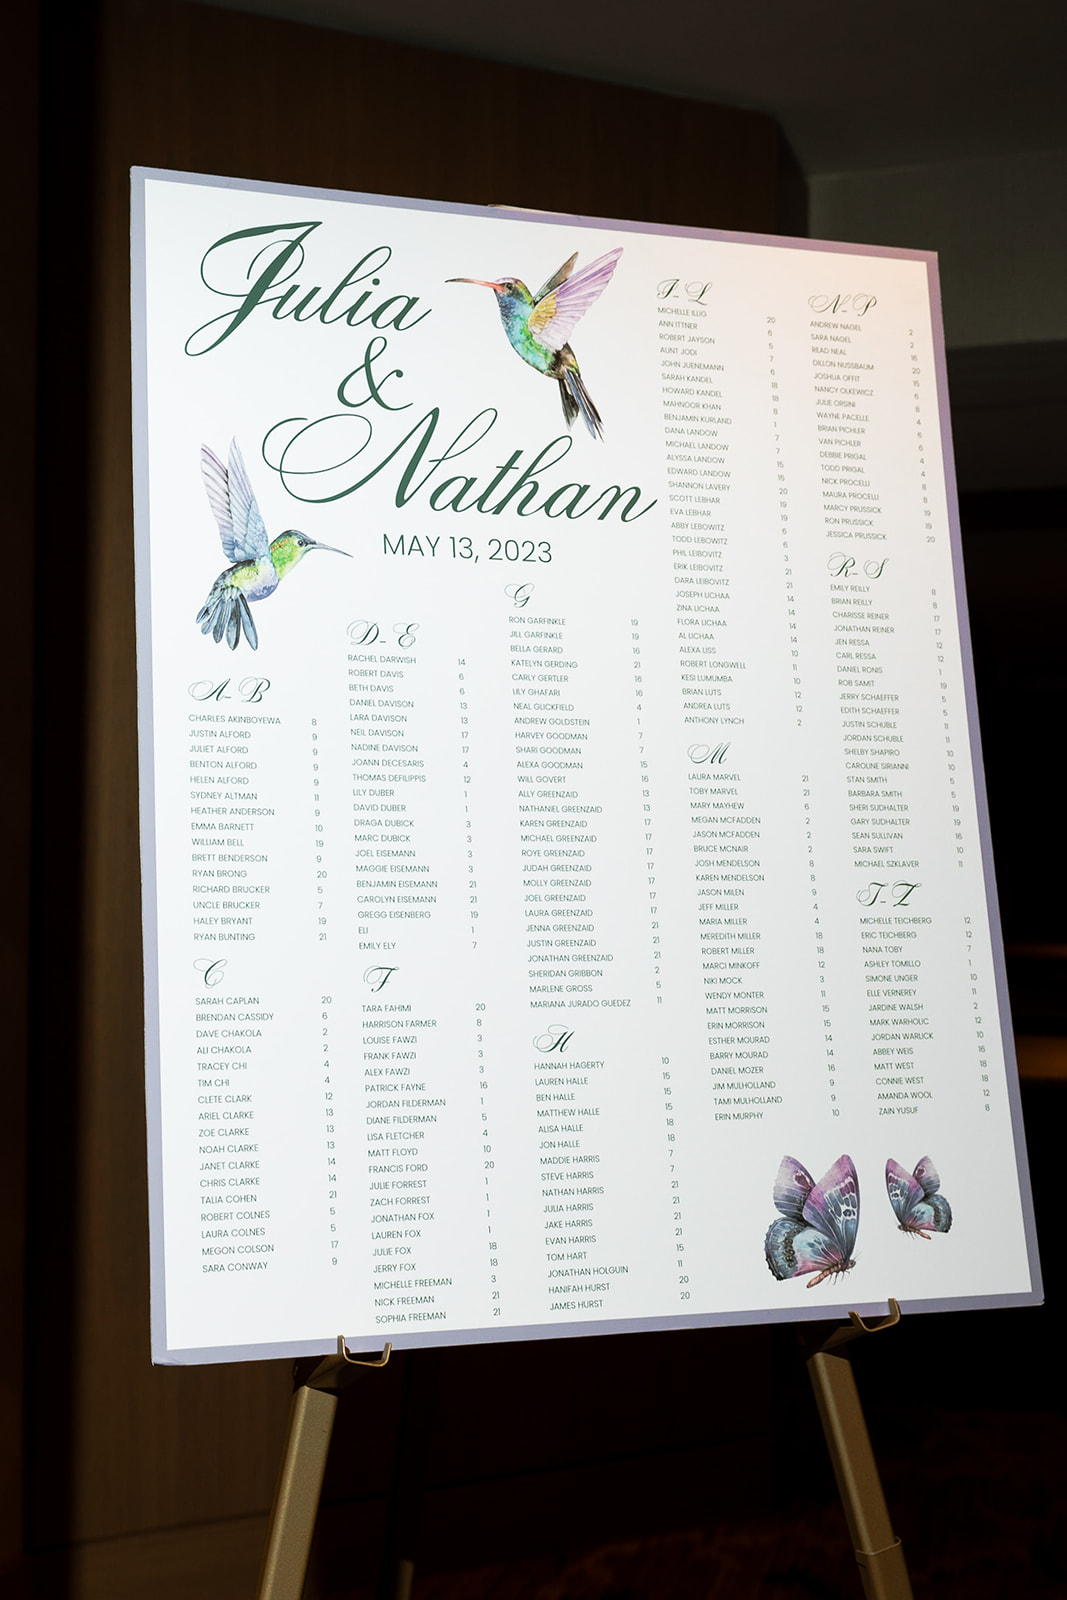 Julia
&
Nathan
MAY 13, 2023
A-B
CHARLES AKINBOYEWA 8
JUSTIN ALFORD 9
JULIET ALFORD 9
BENTON ALFORD 9
HELEN ALFORD 9
SYDNEY ALTMAN 11
HEATHER ANDERSON 9
EMMA BARNETT 10
WILLIAM BELL 19
BRETT BENDERSON 9
RYAN BRONG 20
RICHARD BRUCKER 5
UNCLE BRUCKER 7
HALEY BRYANT 19
RYAN BUNTING 21
C
SARAH CAPLAN 20
BRENDAN CASSIDY 6
DAVE CHAKOLA 2
ALI CHAKOLA 2
TRACEY CHI 4
TIM CHI 4
CLETE CLARK 12
ARIEL CLARKE 13
ZOE CLARKE 13
NOAH CLARKE 13
JANET CLARKE 14
CHRIS CLARKE 14
TALIA COHEN 21
ROBERT COLNES 5
LAURA COLNES 5
MEGON COLSON 17
SARA CONWAY 9
D-E
RACHEL DARWISH 14
ROBERT DAVIS 6
BETH DAVIS 6
DANIEL DAVISON 13
LARA DAVISON 13
NEIL DAVISON 17
NADINE DAVISON 17
JOANN DECESARIS 4
THOMAS DEFILIPPIS 12
LILY DUBER 1
DAVID DUBER 1
DRAGA DUBICK 3
MARC DUBICK 3
JOEL EISEMANN 3
MAGGIE EISEMANN 3
BENJAMIN EISEMANN 21
CAROLYN EISEMANN 21
GREGG EISENBERG 19
ELI 1
EMILY ELY 7
F
TARA FAHIMI 20
HARRISON FARMER 8
LOUISE FAWZI 3
FRANK FAWZI 3
ALEX FAWZI 3
PATRICK FAYNE 16
JORDAN FILDERMAN 1
DIANE FILDERMAN 5
LISA FLETCHER 4
MATT FLOYD 10
FRANCIS FORD 20
JULIE FORREST 1
ZACH FORREST 1
JONATHAN FOX 1
LAUREN FOX 1
JULIE FOX 18
JERRY FOX 18
MICHELLE FREEMAN 3
NICK FREEMAN 21
SOPHIA FREEMAN 21
G
RON GARFINKLE 19
JILL GARFINKLE 19
BELLA GERARD 16
KATELYN GERDING 21
CARLY GERTLER 16
LILY GHAFARI 16
NEAL GLICKFIELD 4
ANDREW GOLDSTEIN 1
HARVEY GOODMAN 7
SHARI GOODMAN 7
ALEXA GOODMAN 15
WILL GOVERT 16
ALLY GREENZAID 13
NATHANIEL GREENZAID 13
KAREN GREENZAID 17
MICHAEL GREENZAID 17
ROYE GREENZAID 17
JUDAH GREENZAID 17
MOLLY GREENZAID 17
JOEL GREENZAID 17
LAURA GREENZAID 17
JENNA GREENZAID 21
JUSTIN GREENZAID 21
JONATHAN GREENZAID 21
SHERIDAN GRIBBON 2
MARLENE GROSS 5
MARIANA JURADO GUEDEZ 11
H
HANNAH HAGERTY 10
LAUREN HALLE 15
BEN HALLE 15
MATTHEW HALLE 15
ALISA HALLE 18
JON HALLE 18
MADDIE HARRIS 7
STEVE HARRIS 7
NATHAN HARRIS 21
JULIA HARRIS 21
JAKE HARRIS 21
EVAN HARRIS 21
TOM HART 15
JONATHAN HOLGUIN 11
HANIFAH HURST 20
JAMES HURST 20
I-L
MICHELLE ILLIG 20
ANN ITTNER 6
ROBERT JAYSON 5
AUNT JODI 7
JOHN JUENEMANN 6
SARAH KANDEL 18
HOWARD KANDEL 18
MAHNOOR KHAN 8
BENJAMIN KURLAND 1
DANA LANDOW 7
MICHAEL LANDOW 7
ALYSSA LANDOW 15
EDWARD LANDOW 15
SHANNON LAVERY 20
SCOTT LEBHAR 19
EVA LEBHAR 19
ABBY LEBOWITZ 6
TODD LEBOWITZ 6
PHIL LEIBOVITZ 3
ERIK LEIBOVITZ 21
DARA LEIBOVITZ 21
JOSEPH LICHAA 14
ZINA LICHAA 14
FLORA LICHAA 14
AL LICHAA 14
ALEXA LISS 10
ROBERT LONGWELL 11
KESI LUMUMBA 10
BRIAN LUTS 12
ANDREA LUTS 12
ANTHONY LYNCH 2
M
LAURA MARVEL 21
TOBY MARVEL 21
MARY MAYHEW 6
MEGAN MCFADDEN 2
JASON MCFADDEN 2
BRUCE MCNAIR 2
JOSH MENDELSON 8
KAREN MENDELSON 8
JASON MILEN 9
JEFF MILLER 4
MARIA MILLER 4
MEREDITH MILLER 18
ROBERT MILLER 18
MARCI MINKOFF 12
NIKI MOCK 3
WENDY MONTER 11
MATT MORRISON 15
ERIN MORRISON 15
ESTHER MOURAD 14
BARRY MOURAD 14
DANIEL MOZER 16
JIM MULHOLLAND 9
TAMI MULHOLLAND 9
ERIN MURPHY 10
N-P
ANDREW NAGEL 2
SARA NAGEL 2
READ NEAL 16
DILLON NUSSBAUM 20
JOSHUA OFFIT 15
NANCY OLKEWICZ 6
JULIE ORSINI 8
WAYNE PACELLE 4
BRIAN PICHLER 6
VAN PICHLER 6
DEBBIE PRIGAL 4
TODD PRIGAL 4
NICK PROCELLI 8
MAURA PROCELLI 8
MARCY PRUSSICK 19
RON PRUSSICK 19
JESSICA PRUSSICK 20
R-S
EMILY REILLY 8
BRIAN REILLY 8
CHARISSE REINER 17
JONATHAN REINER 17
JEN RESSA 12
CARL RESSA 12
DANIEL RONIS 1
ROB SAMIT 19
JERRY SCHAEFFER 5
EDITH SCHAEFFER 5
JUSTIN SCHUBLE 11
JORDAN SCHUBLE 11
SHELBY SHAPIRO 10
CAROLINE SIRIANNI 10
STAN SMITH 5
BARBARA SMITH 5
SHERI SUDHALTER 19
GARY SUDHALTER 19
SEAN SULLIVAN 16
SARA SWIFT 10
MICHAEL SZKLAVER 11
T-Z
MICHELLE TEICHBERG 12
ERIC TEICHBERG 12
NANA TOBY 7
ASHLEY TOMILLO 1
SIMONE UNGER 10
ELLE VERNEREY 11
JARDINE WALSH 2
MARK WARHOLIC 12
JORDAN WARLICK 10
ABBEY WEIS 16
MATT WEST 18
CONNIE WEST 18
AMANDA WOOL 12
ZAIN YUSUF 8